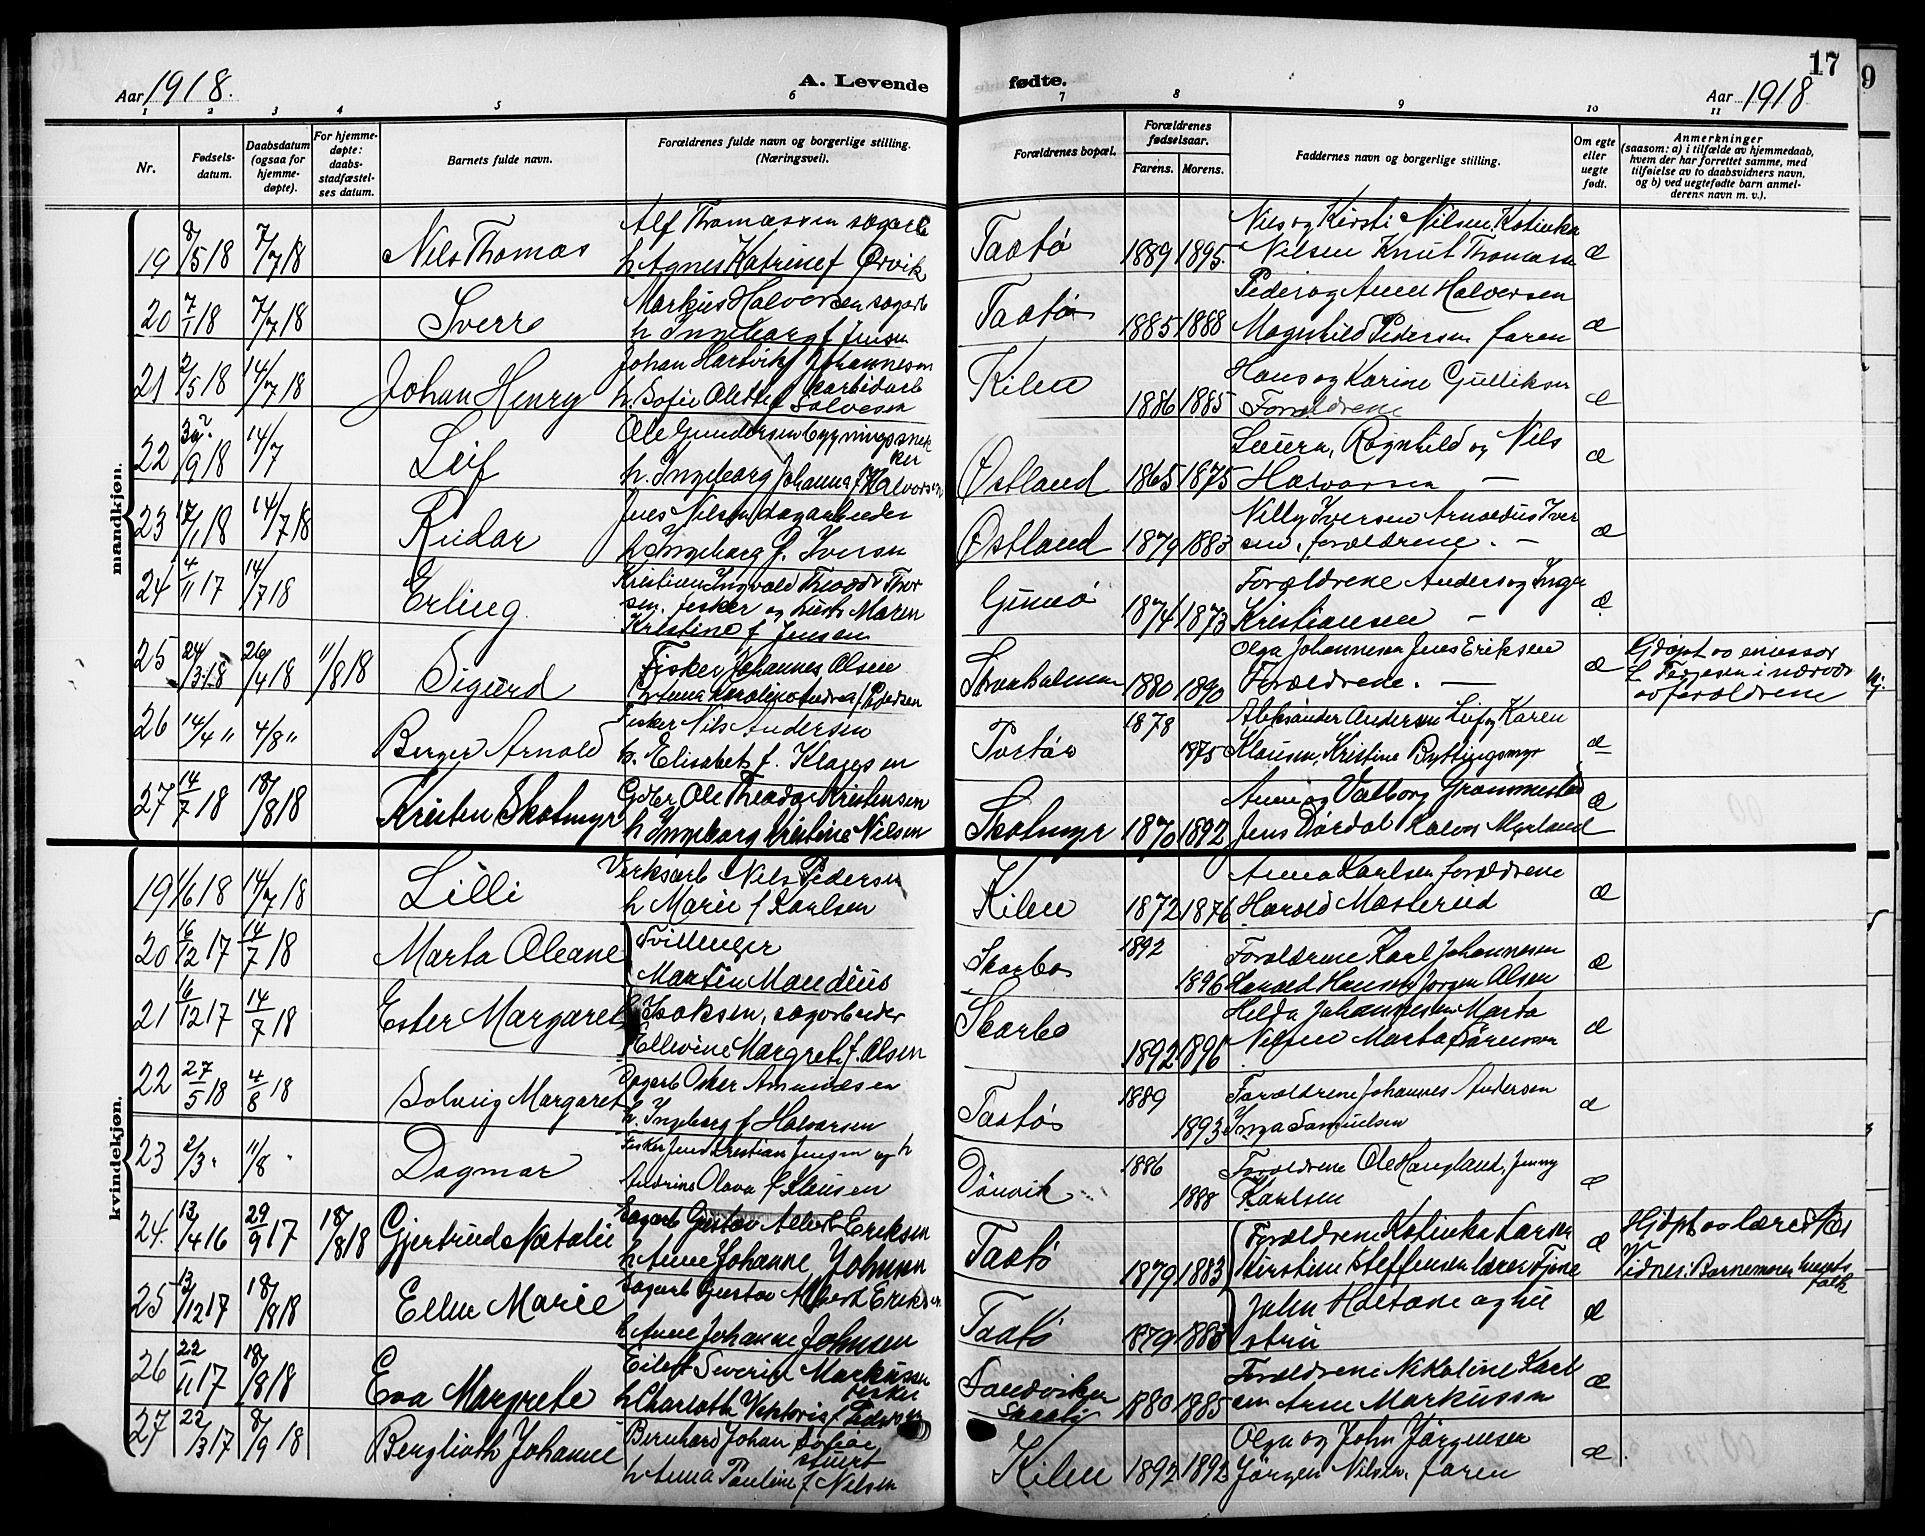 17
9
Aar 1918.
A. Levende
fødte.
Aar 1918
1 2 3 4 5 6 7 8 9 10 11
Nr.
Fødsels-
datum.
Daabsdatum
(ogsaa for
hjemme-
døpte).
For hjemme-
døpte:
daabs-
stadfæstel-
ses datum.
Barnets fulde navn.
Forældrenes fulde navn og borgerlige stilling.
(Næringsvei).
Forældrenes bopæl.
Forældrenes
fødselsaar.
Farens. Morens.
Faddernes navn og borgerlige stilling.
Om egte
eller
uegte
født.
Anmerkninger
(saasom: a) i tilfælde av hjemmedaab,
hvem der har forrettet samme, med
tilføielse av to daabsvidners navn,
og b) ved uegtefødte barn anmel-
derens navn m. v.).
mandkjøn.
Alf Thomassen sagarb Nils og Kirsti Nilsen, Katinka
19 8/5 18 7/7 18 Nils Thomas h Agnes Katrine f Ørvik Taatø 1889 1895. Nilsen Knut Thomassn æ
Markus Halvorsen sagarb Peder og Anne Halvorsen
20 7/1 18 7/7 18 Sverre h Ingeborg f Jensen Taatø 1885 1888 Magnhild Pedersen faren æ
Johan Hartvik Johannesen Hans og Karine Gulliksen
21 2/5 18 14/7 18 Johan Henry karbidarb h. Sofie Alette f Salvesen Kilen 1886 1885 Forældrene æ
Ole Gundersen bygningssnek Laura, Ragnhild og Nils
ker
22 30/9 18 14/7 Leif h. Ingeborg Johanna f Halvorsen Østland 1865 1875 Halvorsen — æ
Jens Nilsen dagarbeider Nilly Iversen Arnoldus Iver
23 17/1 18 14/7 18 Reidar h Ingeborg f. Iversen Østland 1879 1883 sen, forældrene. — æ
Kristian Ingvald Theodor Thor Forældrene Anders og Inga
24 4/11 17 14/7 18 Erling sen. fisker og hustr Maren Gumø 1874 1873 Kristiansen — æ
Kristine f Jensen
Olga Johannesen Jens Eriksen
25 24/3 18 26/4 18 11/8 18 Sigurd Fisker Johannes Olsen 1880 1890 Forældrene. — æ
av forældrene
Fisker Nils Andersen 1878 Aleksander Andersen Leif og Karen
26 14/4 " 4/8 " Berger Arnold h. Elisabeth f. Klausen 1875 Klausen, Kristine Byttingsmyr æ
Gdbr. Ole Theodor Kristensen Anne og Valborg Grømmestad
27 14/7 18 18/8 18 Kristen Skotmyr h Ingeborg Kristine Nilsen Skotmyr 1870 1892 Jens Dørdal Karen Myrland æ
kvindekjøn.
Verksarb Nils Pedersen Anna Karlsen forældrene
19 1/6 18 14/7 18 Lilli h Marie f Karlsen Kilen 1872 1876 Harald Mosterud æ
Tvillinger 1892 Forældrene Karl Johannesen
20 16/12 17 14/7 18 Marta Oleane Martin Mandius Skarbo 1896 Harald Hansen Jørgen Olsen æ
21 16/12 17 14/7 18 Ester Margaret Isaksen, sagarbeider Skarbo Helda Johannessen Marta
Ellevine Margrete f. Olsen 1892 1896 Nilsen Marta Sørensen æ
Dagarb Osker Amundsen 1889 Forældrene Johannes Andersen
22 27/5 18 4/8 18 Solveig Margaret h. Ingeborg f Halvorsen Taatø 1893 Inga Samuelsen æ
Fisker Jens Kristian Jensen og h 1886 Forældrene Ole Haugland, Jenny
23 2/3 " 11/8 " Dagmar Andrine Olava f Klausen Dønvik 1888 Karlsen æ
Sagarb Gustav Albert Eriksen Forældrene Katinka Larsen Hjdøpt av lærer Næs
24. 13/4 16 29/9 17 18/8 18 Gjertrud Natalie h Anne Johanne Johnsen Taatø 1879 1883 Kirstine Steffensen lærer Tjøne æ Vidner: Barnemoren husets
folk
Sagarb Gustav Albert Eriksen John Haltane og hu
25 13/12 17 18/8 18 Ellen Marie h Anne Johanne Johnsen Taatø 1879 1883 stru æ
Eilert Severin Markussen Forældrene Nikoline Karl
fisker
26 22/11 17 18/8 18 Eva Margrete h Charlotte Viktoria f Sandviken Skaatø 1880 1885 sen Arne Markussen æ
Bernhard Johan Sofiar Olga og John Jørgensen
stuert
27 22/3 17 8/9 18 Berglioth Johanne h Anna Pauline f Nilsen Kilen 1892 1892 Jørgen Nilsen, faren æ